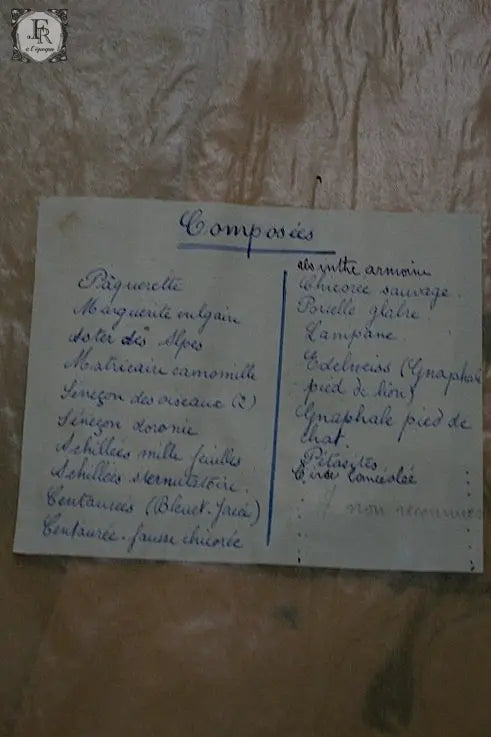 FR
à l'époque
Composées
Pâquerette
Marguerite vulgaire
Aster des Alpes
Matricaire camomille
Séneçon des oiseaux (2)
Séneçon doronic
Achillées mille feuilles
Achillées sternutatoire.
Centaurées (Bleuet-Jacée)
Centaurée-fausse chicorée
absinthe armoise
Chicorée sauvage.
Porcelle glabre
Lampsane.
Edelweiss (Gnaphale
pied de lion)
Gnaphale pied de
chat.
Pétasites
Cirse lancéolée
1 non reconnue